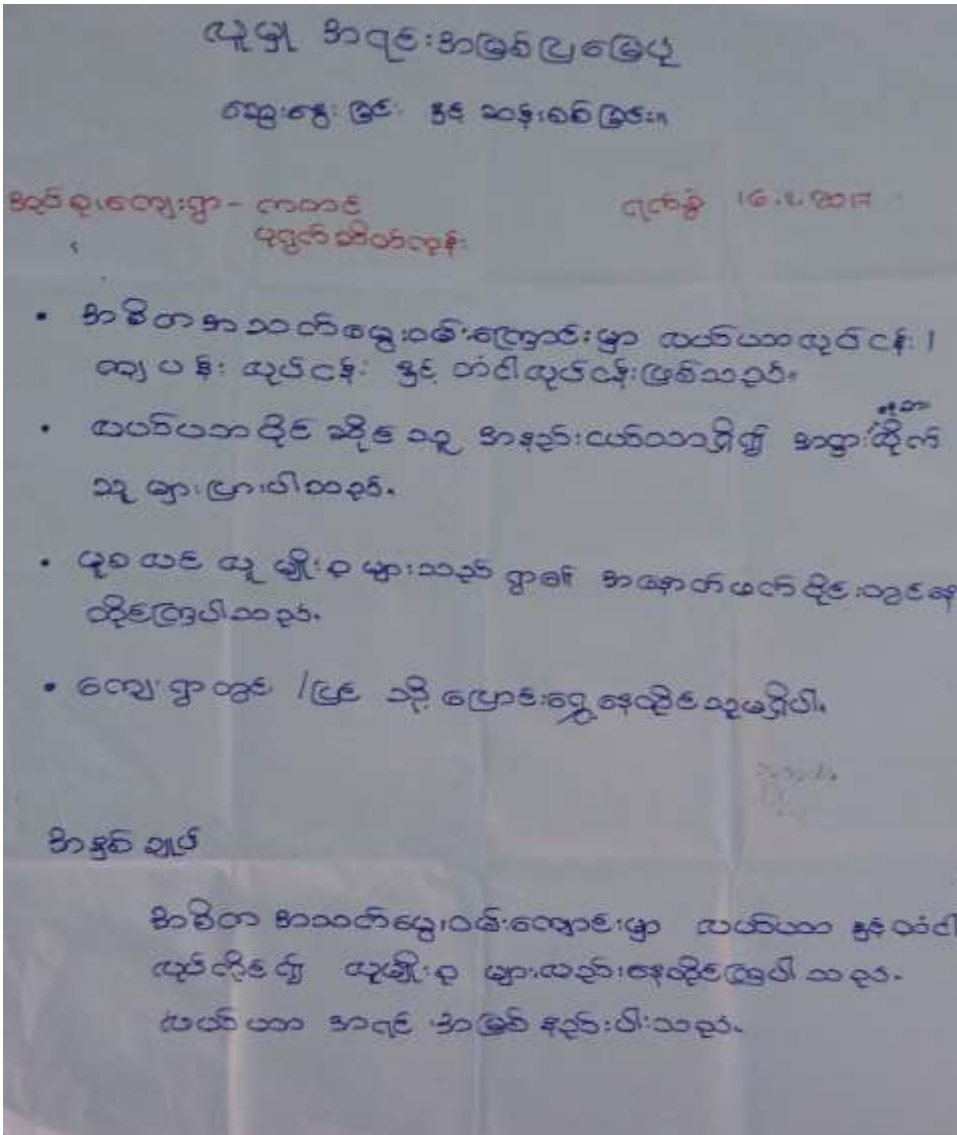 လူမှု အရင်းအမြစ်ပြမြေပုံ
ဆွေးနွေးခြင်း နှင့် ဆန်းစစ်ခြင်း။
အုပ်စု၊ကျေးရွာ - ကထင် ရက်စွဲ 16.2.2017
ပုရွက်ဆိတ်ကုန်း
• အဓိကအသက်မွေးဝမ်းကြောင်းမှာ လယ်ယာလုပ်ငန်း၊
ကျပန်း လုပ်ငန်း နှင့် တံငါလုပ်ငန်းဖြစ်သည်။
• လယ်ယာပိုင်ဆိုင်သူ အနည်းငယ်သာရှိ၍ အငှားလိုက်
သူများပြားပါသည်။
• ယူစလင် လူမျိုးစုများသည် ရွာ၏ အနောက်ဖက်ပိုင်းတွင်နေ
ထိုင်ကြပါသည်။
• ကျေးရွာတွင် /ပြင် သို့ ပြောင်းရွှေ့နေထိုင်သူမရှိပါ။
အနှစ်ချုပ်
အဓိက အသက်မွေးဝမ်းကျောင်းမှာ လယ်ယာ နှင့် တံငါ
လုပ်ကိုင်၍ လူမျိုးစု များလည်းနေထိုင်ကြပါသည်။
လယ်ယာ အရင်အမြစ်နည်းပါးသည်။